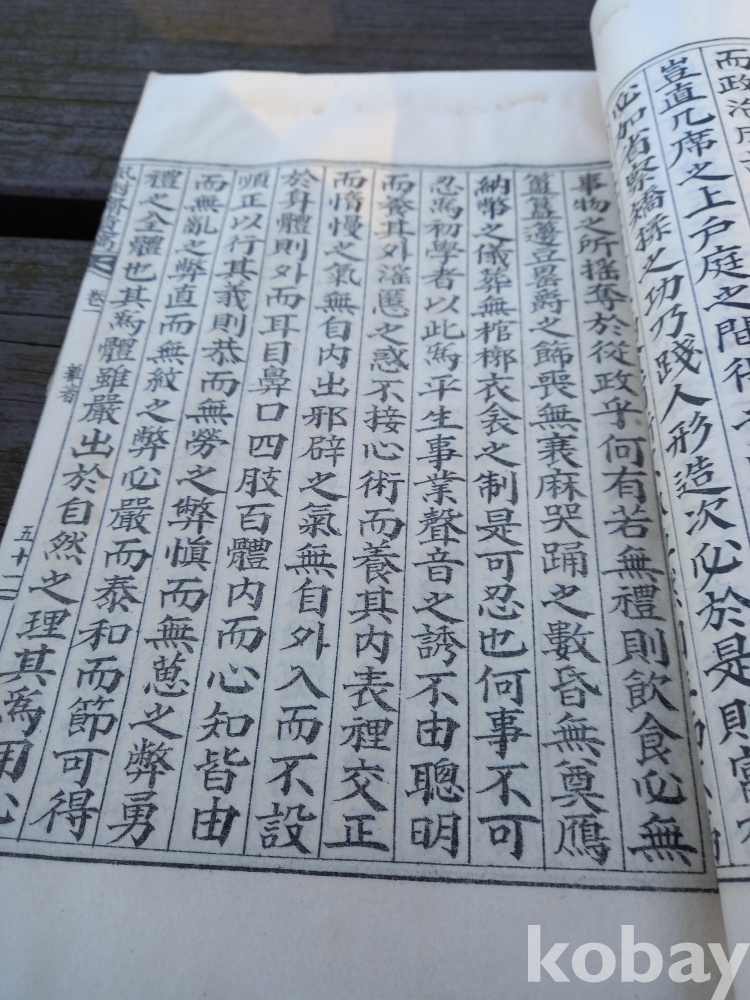 豈直几席之上戶庭之間
必如省察矯揉之功乃踐人形造次必於是則
事物之所搖奪於從政乎何有若無禮則飮食必無
簠簋籩豆罍爵之飾喪無衰麻哭踊之數昏無奠鴈
納幣之儀葬無棺槨衣衾之制是可忍也何事不可
忍爲初學者以此爲平生事業聲音之誘不由聰明
而養其外滛慝之惑不接心術而養其內表裡交正
而惰慢之氣無自內出邪辟之氣無自外入而不設
於身體則外而耳目鼻口四肢百體內而心知皆由
順正以行其義則恭而無勞之弊愼而無葸之弊勇
而無亂之弊直而無絞之弊必嚴而泰和而節可得
禮之全體也其爲體雖嚴出於自然之理其爲用必
卷一
雜著
五十二
kobay